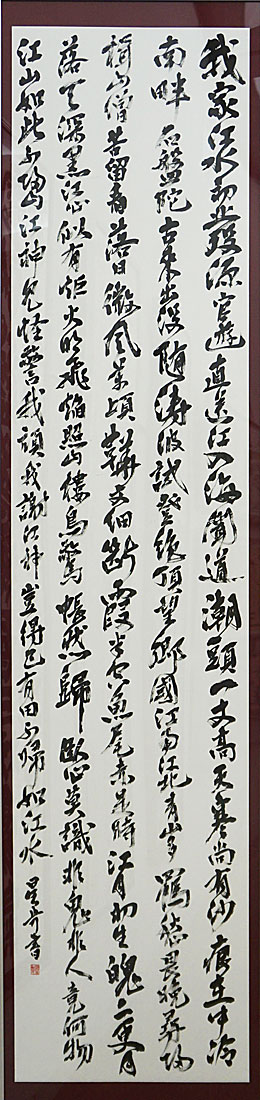 我家江水初發源宦遊直送江入海聞道潮頭一丈高天寒尚有沙痕在中冷
南畔石盤陀古來出沒隨濤波試登絶頂望鄉國江南江北青山多羈愁畏晚尋歸
楫山僧苦留看落日微風萬頃鞾文細斷霞半空魚尾赤是時江月初生魄二更月
落天深黑江心似有炬火明飛焰照山棲鳥驚悵然歸臥心莫識非鬼非人竟何物
江山如此不歸山江神見怪警我頑我謝江神豈得已有田不歸如江水